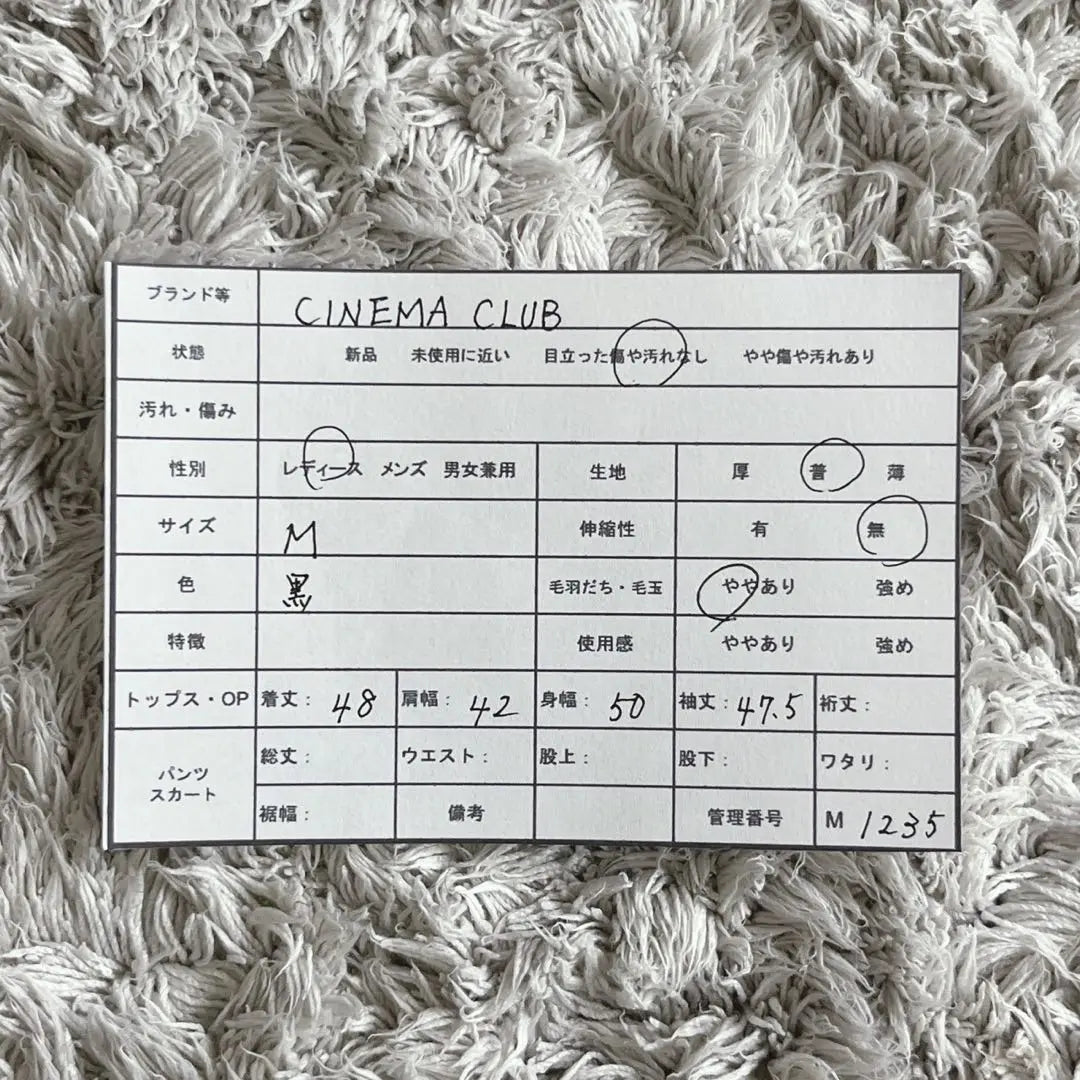 ブランド等 CINEMA CLUB
状態 新品 未使用に近い 目立った傷や汚れなし やや傷や汚れあり
汚れ・傷み
性別 レディース メンズ 男女兼用 生地 厚 普 薄
サイズ M 伸縮性 有 無
色 黒 毛羽だち・毛玉 ややあり 強め
特徴 使用感 ややあり 強め
トップス・OP 着丈: 48 肩幅: 42 身幅: 50 袖丈: 47.5 裄丈:
パンツ スカート 総丈: ウエスト: 股上: 股下: ワタリ:
裾幅: 備考 管理番号 M 1235